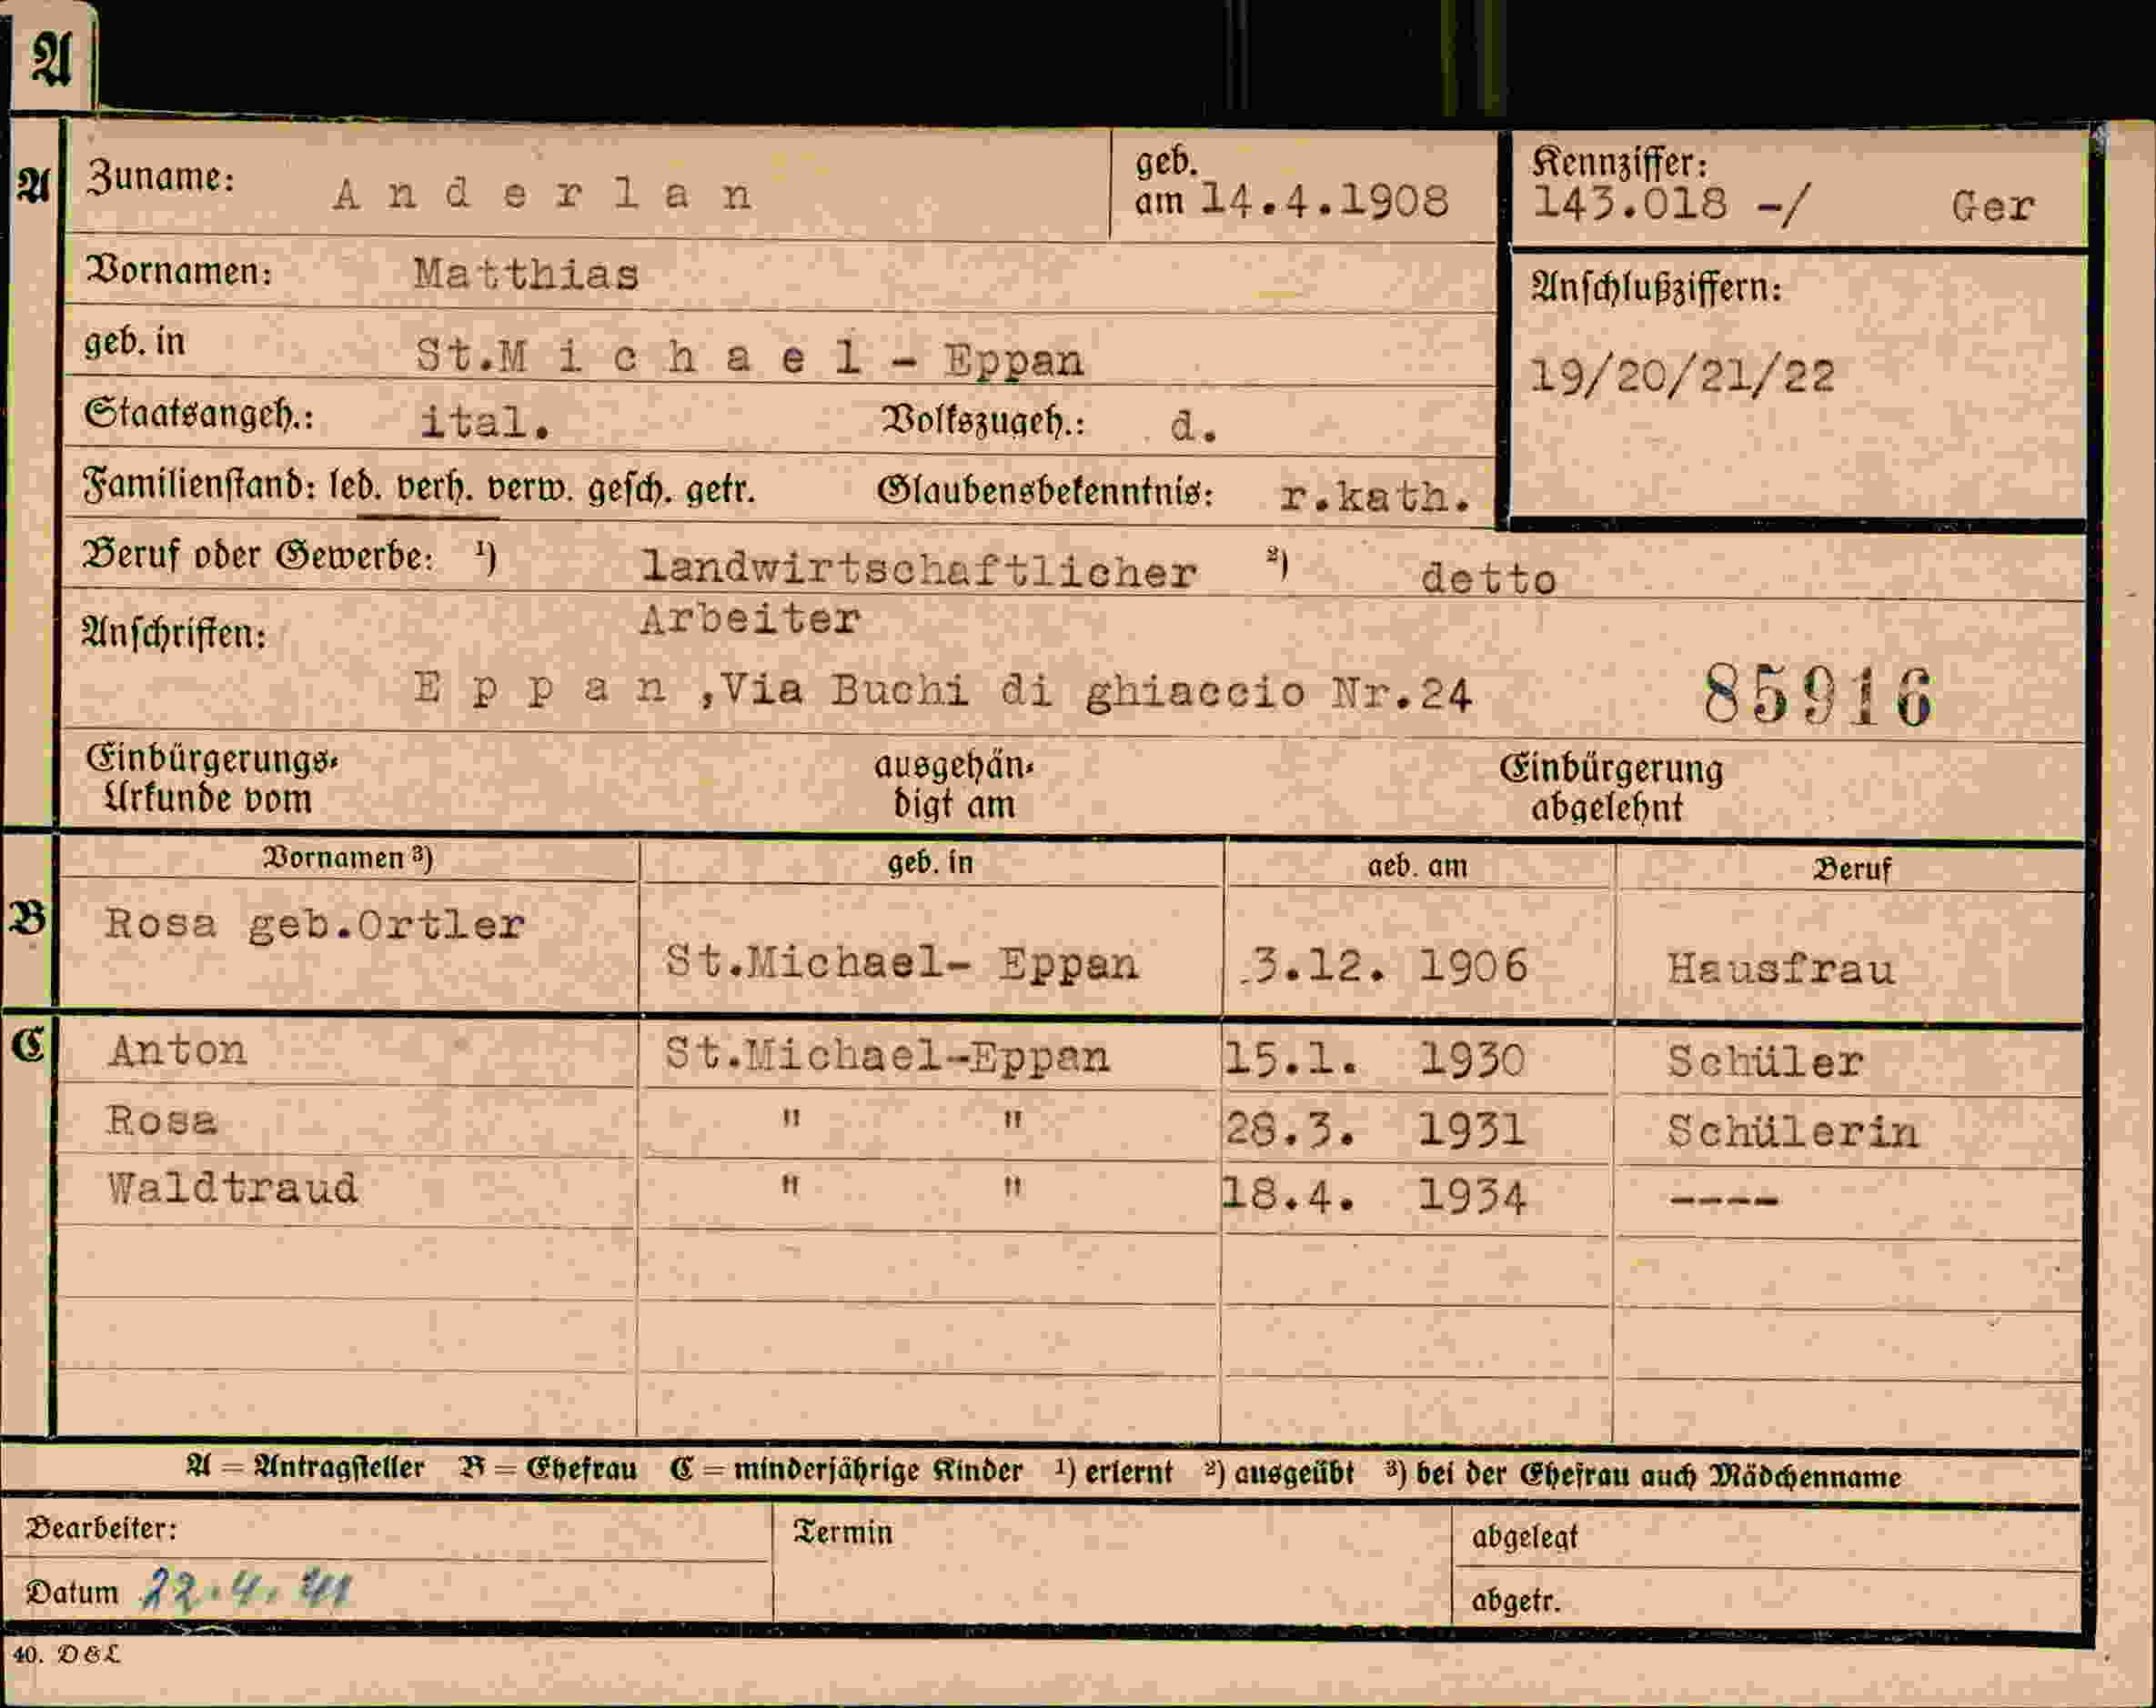 A
A Zuname: Anderlan geb. am 14.4.1908 Kennziffer: 143.018 -/ Ger
Vornamen: Matthias Anschlußziffern:
geb. in St.Michael - Eppan 19/20/21/22
Staatsangeh.: ital. Volkszugeh.: d.
Familienstand: led. verh. verw. gesch. getr. Glaubensbekenntnis: r.kath.
Beruf oder Gewerbe: 1) landwirtschaftlicher 2) detto
Arbeiter
Anschriften:
Eppan,Via Buchi di ghiaccio Nr.24 85916
Einbürgerungs- ausgehän- Einbürgerung
Urkunde vom digt am abgelehnt
Vornamen 3) geb. in geb. am Beruf
B Rosa geb.Ortler St.Michael- Eppan 3.12. 1906 Hausfrau
C Anton St.Michael-Eppan 15.1. 1930 Schüler
Rosa " " 28.3. 1931 Schülerin
Waldtraud " " 18.4. 1934 ----
A = Antragsteller B = Ehefrau C = minderjährige Kinder 1) erlernt 2) ausgeübt 3) bei der Ehefrau auch Mädchenname
Bearbeiter: Termin abgelegt
Datum 22.4.41 abgetr.
40. D&L